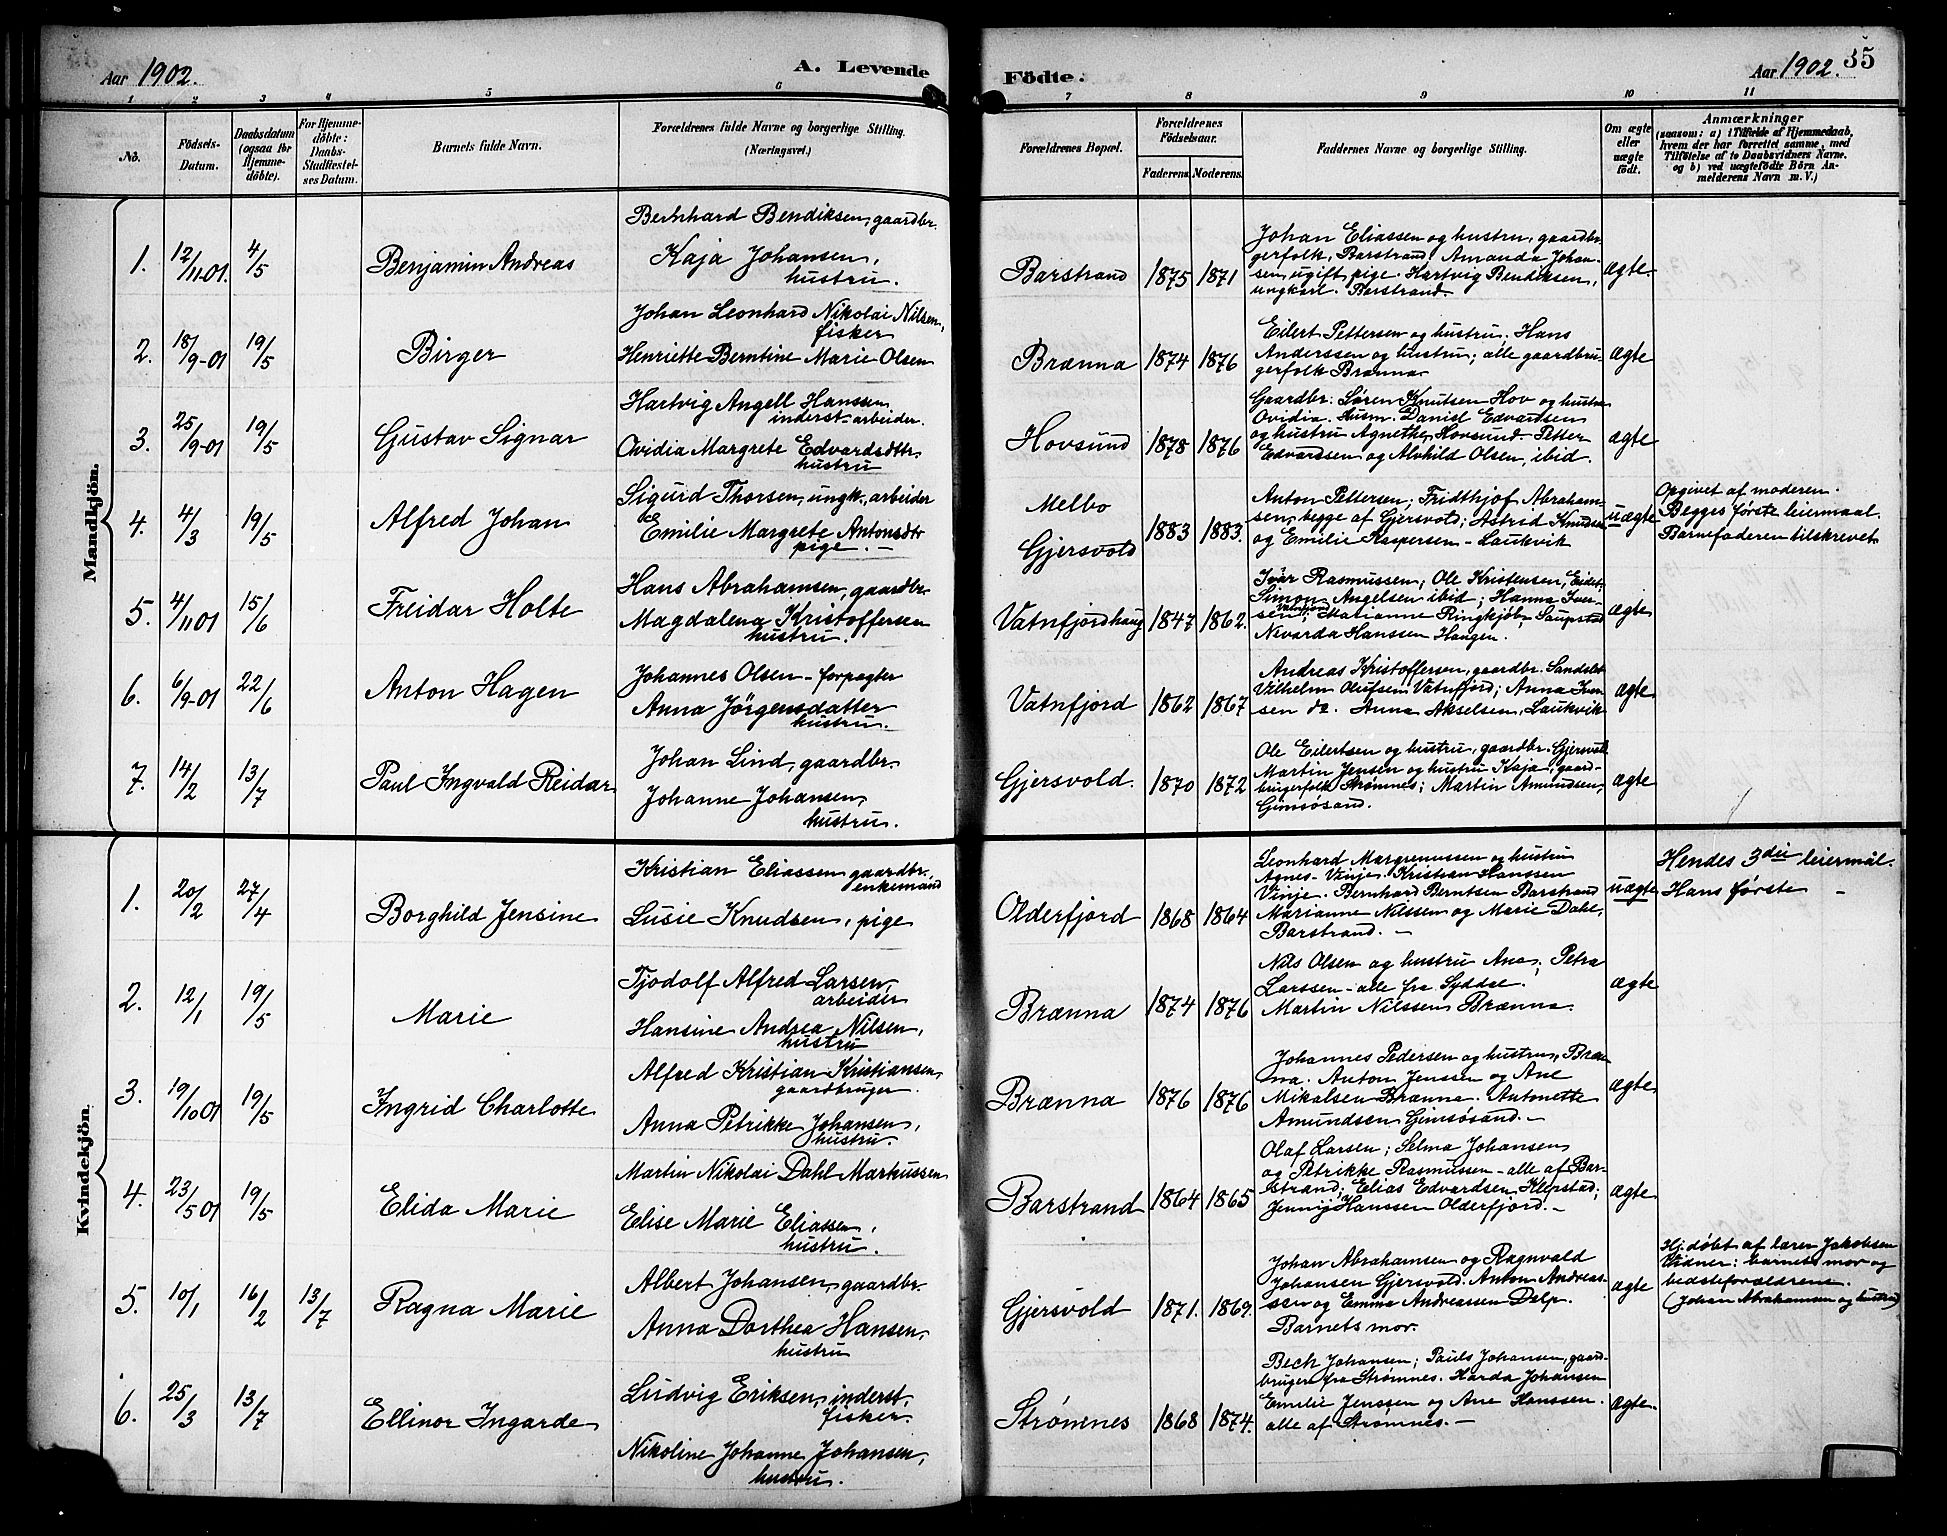 Aar 1902.
A. Levende
Födte.
Aar 1902.
35
1 2 3 4 5 6 7 8 9 10 11
No.
Födsels-
Datum.
Daabsdatum
(ogsaa for
Hjemme-
döbte).
For Hjemme-
döbte:
Daabs-
Stadfæstel-
ses Datum.
Barnets fulde Navn.
Forældrenes fulde Navne og borgerlige Stilling.
(Næringsvei.)
Forældrenes Bopæl.
Forældrenes
Födselsaar.
Faderens. Moderens.
Faddernes Navne og borgerlige Stilling.
Om ægte
eller
uægte
födt.
Anmærkninger
(saasom: a) i Tilfælde af Hjemmedaab,
hvem der har forrettet samme, med
Tilföielse af to Daabsvidners Navne.
og b) ved uægtefödte Börn An-
melderens Navn m. V.)
Mandkjön.
1. 12/11 01. 4/5 Benjamin Andreas
Bernhard Bendiksen, gaardbr.
Kaja Johansen,
hustru.
Barstrand 1875 1871
Johan Eliassen og hustru, gaardbr-
gerfolk, Barstrand, Amanda Johan-
sen, ugift pige. Hartvig Bendiksen,
ungkarl. Barstrand.
ægte.
2. 18/9-01 19/5 Birger
Johan Leonhard Nikolai Nilsen,
fisker
Henriette Berntine Marie Olsen
Brænna 1874 1876
Eilert Pettersen og hustru; Hans
Anderssen og hustru; alle gaardbru-
gerfolk Brænna.
ægte
3. 25/9-01 19/5 Gustav Signar
Hartvig Angell Hanssen
inderst-arbeider.
Ovidia Margrete Edvardsdttr.
hustru
Hovsund 1878 1876
Gaardbr. Søren Knutsen Hov og hustru
Ovidia. Husm. Daniel Edvardsen
og hustru Agnethe, Hovsund. Petter
Edvardsen og Alvhild Olsen, ibid.
ægte
4. 4/3 19/5 Alfred Johan
Sigurd Thorsen, ungk., arbeider
Emilie Margrete Antonsdtr
pige. -
Melbo
Gjersvold 1883 1883.
Anton Pettersen; Fridthjof Abraham-
sen, begge af Gjersvold; Astrid Knudsen
og Emilie Kaspersen - Laukvik
uægte
Opgivet af moderen.
Begges første leiermaal.
Barnefaderen tilskrevet
5. 4/11 01 15/6 Freidar Holte
Hans Abrahamsen, gaardbr.
Magdalena Kristoffersen
hustru.
Vatnfjordhaug 1847 1862.
Ivar Rasmussen; Ole Kristensen, Eidet;
Simon Angelsen ibid; Hanna Iver-
sen, Vatnfjord; Marianne Ringkjøb, Saupstad
Nevarda Hanssen Haugen.
ægte
6. 6/9-01 22/6 Anton Hagen
Johannes Olsen - forpagter
Anna Jörgensdatter
hustru.
Vatnfjord 1862 1867
Andreas Kristoffersen, gaardbr. Sandslet
Vilhelm Olufsen Vatnfjord; Anna Iver-
sen do. Anna Akselsen, Laukvik
ægte
7. 14/2 13/7 Paul Ingvald Reidar
Johan Lind, gaardbr.
Johanne Johansen,
hustru.
Gjersvold. 1870 1872
Ole Eilertsen og hustru, gaardbr. Gjersvold
Martin Jensen og hustru Kaja, gaard-
brugerfolk Strømnes; Martin Amundsen,
Gimsøsand.
ægte
Kvindekjön.
1. 20/2 27/4 Borghild Jensine
Kristian Eliassen gaardbr.,
enkemand
Lusie Knudsen, pige
Olderfjord 1868 1864
Leonhard Margrenussen og hustru
Agnes Vinje. Kristian Hanssen
Vinje. Bernhard Berntsen Barstrand
Marianne Nilssen og Marie Dahl,
Barstrand. -
uægte
Hendes 3die leiermål.
Hans første -
2. 12/1 19/5 Marie
Tjodolf Alfred Larsen,
arbeider
Hansine Andrea Nilsen,
hustru
Brænna 1874 1876
Nils Olsen og hustru Ane; Petra
Larssen - alle fra Syddal.
Martin Nilssen Brænna.
ægte
3. 19/10 01 19/5 Ingrid Charlotte
Alfred Kristian Kristiansen,
gaardbruger.
Anna Petrikke Johansen,
hustru.
Brænna 1876 1876
Johannes Pedersen og hustru, Bræn-
na. Anton Jenssen og Ane
Mikalsen Brænna. Antonette
Amundsen Gimsøsand. -
ægte
4. 23/5 01 19/5 Elida Marie
Martin Nikolai Dahl Markussen
Elise Marie Eliassen,
hustru.
Barstrand 1864 1865
Olaf Larsen; Selma Johansen
og Petrikke Rasmussen - alle af Bar-
strand; Elias Edvardsen, Klepstad;
Jenny Hanssen Olderfjord. -
ægte
5. 10/1 16/2 13/7 Ragna Marie
Albert Johansen, gaardbr.
Anna Dorthea Hansen,
hustru
Gjersvold 1871. 1869.
Johan Abrahamsen og Ragnvald
Johansen Gjersvold. Anton Andreas-
sen og Emma Andreassen Delp.
Barnets mor.
ægte
Hj. døbt af lærer Jakobsen
Vidner: barnets mor og
bedsteforældrene.
(Johan Abrahamsen og hustru)
6. 25/3 13/7 Ellinor Ingarda
Ludvig Eriksen, inderst,
fisker.
Nikoline Johanne Johansen,
hustru.
Strømnes 1868 1874.
Bech Johansen; Pauls Johansen, gaard-
bruger fra Strømnes. Harda Johansen
Emilie Jenssen og Ane Hanssen.
alle af Strømnes. -
ægte.